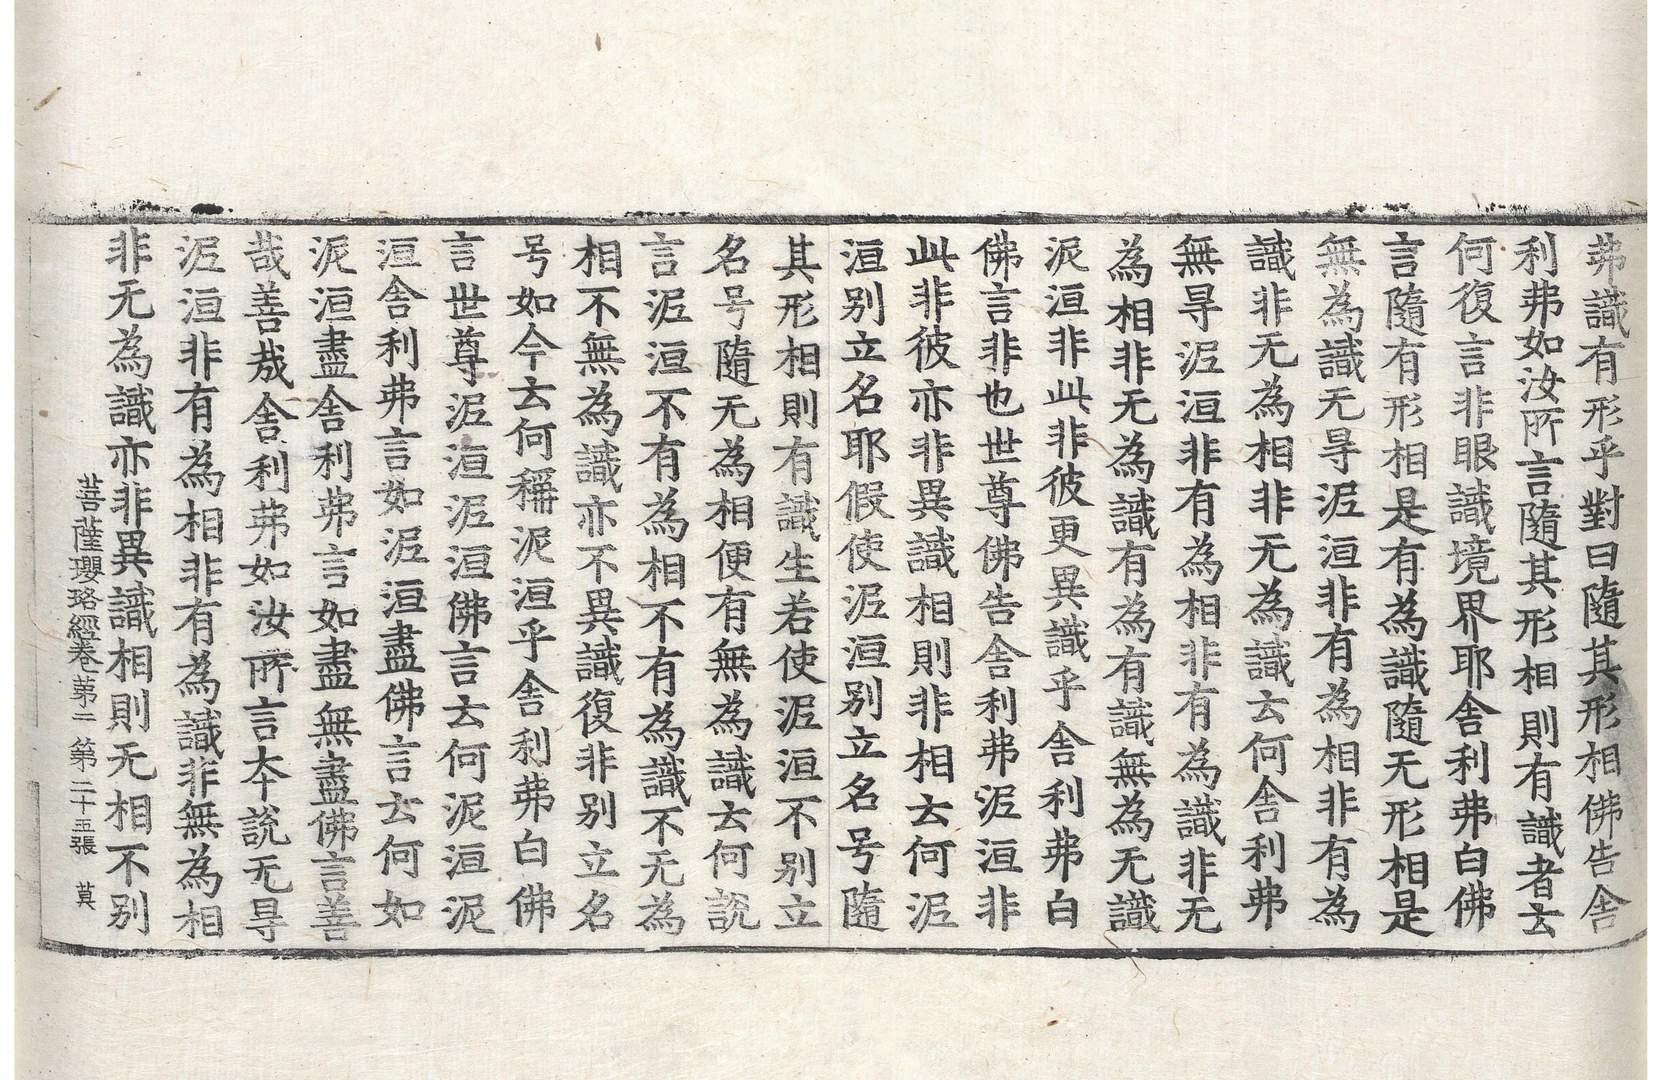 弗識有形乎對曰隨其形相佛告舍
利弗如汝所言隨其形相則有識者云
何復言非眼識境界耶舍利弗白佛
言隨有形相是有為識隨无形相是
無為識无㝵泥洹非有為相非有為
識非无為相非无為識云何舍利弗
無㝵泥洹非有為相非有為識非无
為相非无為識有為有識無為无識
泥洹非此非彼更異識乎舍利弗白
佛言非也世尊佛告舍利弗泥洹非
此非彼亦非異識相則非相云何泥
洹别立名耶假使泥洹别立名号隨
其形相則有識生若使泥洹不别立
名号隨无為相便有無為識云何說
言泥洹不有為相不有為識不无為
相不無為識亦不異識復非别立名
号如今云何稱泥洹乎舍利弗白佛
言世尊泥洹泥洹佛言云何泥洹泥
洹舍利弗言如泥洹盡佛言云何如
泥洹盡舍利弗言如盡無盡佛言善
哉善哉舍利弗如汝所言本說无㝵
泥洹非有為相非有為識非無為相
非无為識亦非異識相則无相不别
菩薩瓔珞經卷苐二 第二十五張 莫